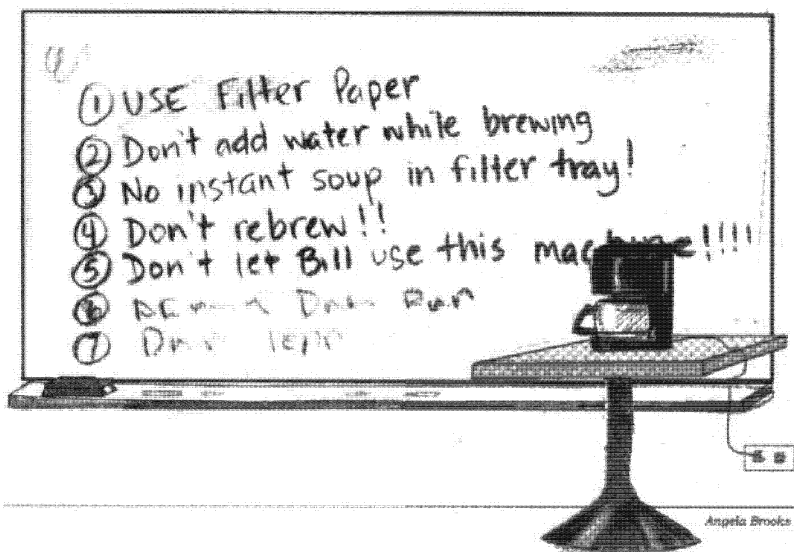 ① USE Filter Paper
② Don't add water while brewing
③ No instant soup in filter tray!
④ Don't rebrew!!
⑤ Don't let Bill use this machine!!!!
⑥
⑦
Angela Brooks